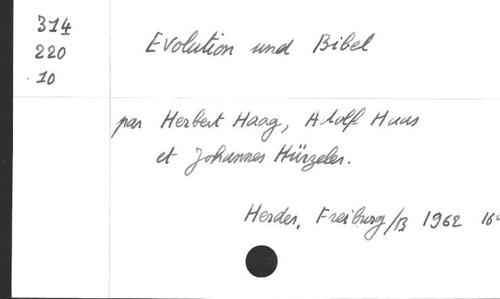 314
220
10
Evolution und Bibel
par Herbert Haag, Adolf Haas
et Johannes Hürzeler.
Herder, Freiburg/B 1962